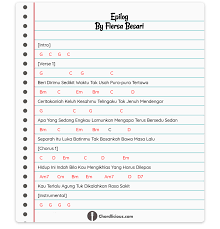 Epilog
By Fiersa Besari
[Intro]
G C G C
[Verse 1]
G G C G
Beri Dirimu Sedikit Waktu Tak Usah Pura-pura Tertawa
Bm C Em Bm C D
Ceritakanlah Keluh Kesahmu Telingaku Tak Jenuh Mendengar
G G C G
Apa Yang Sedang Engkau Lamunkan Mengapa Terus Bersedu Sedan
Bm C Em Bm C D
Separah Itu Luka Batinmu Tak Bosankah Bawa Masa Lalu
[Chorus 1]
C D Em C D Em
Hidup Ini Indah Bila Kau Mengikhlas Yang Harus Dilepas
Am Bm Em Am7 D D7
Kau Terlalu Agung Tuk Dikalahkan Rasa Sakit
[Instrumental]
G G G G
Chordlicious.com